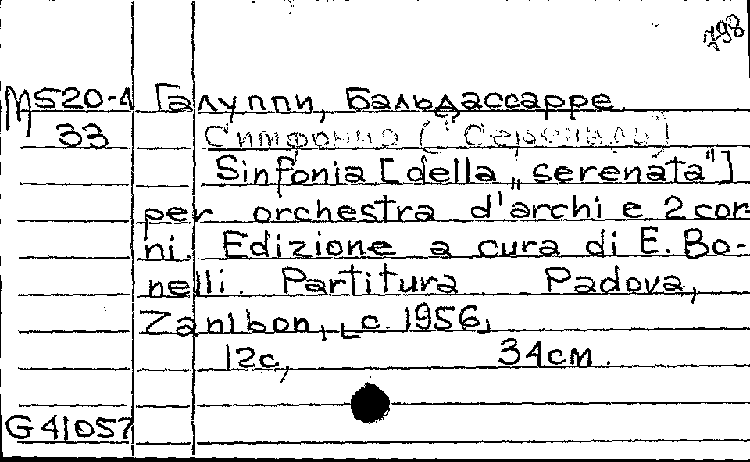 798
М520-4 Галуппи, Бальдассарре
33 Симфония ("Серенада")
Sinfonia [della „serenata"]
per orchestra d'archi e 2 cor
ni. Edizione a cura di E. Bo-
nelli. Partitura Padova,
Zanibon, c. 1956,
12с, 34см.
G41057